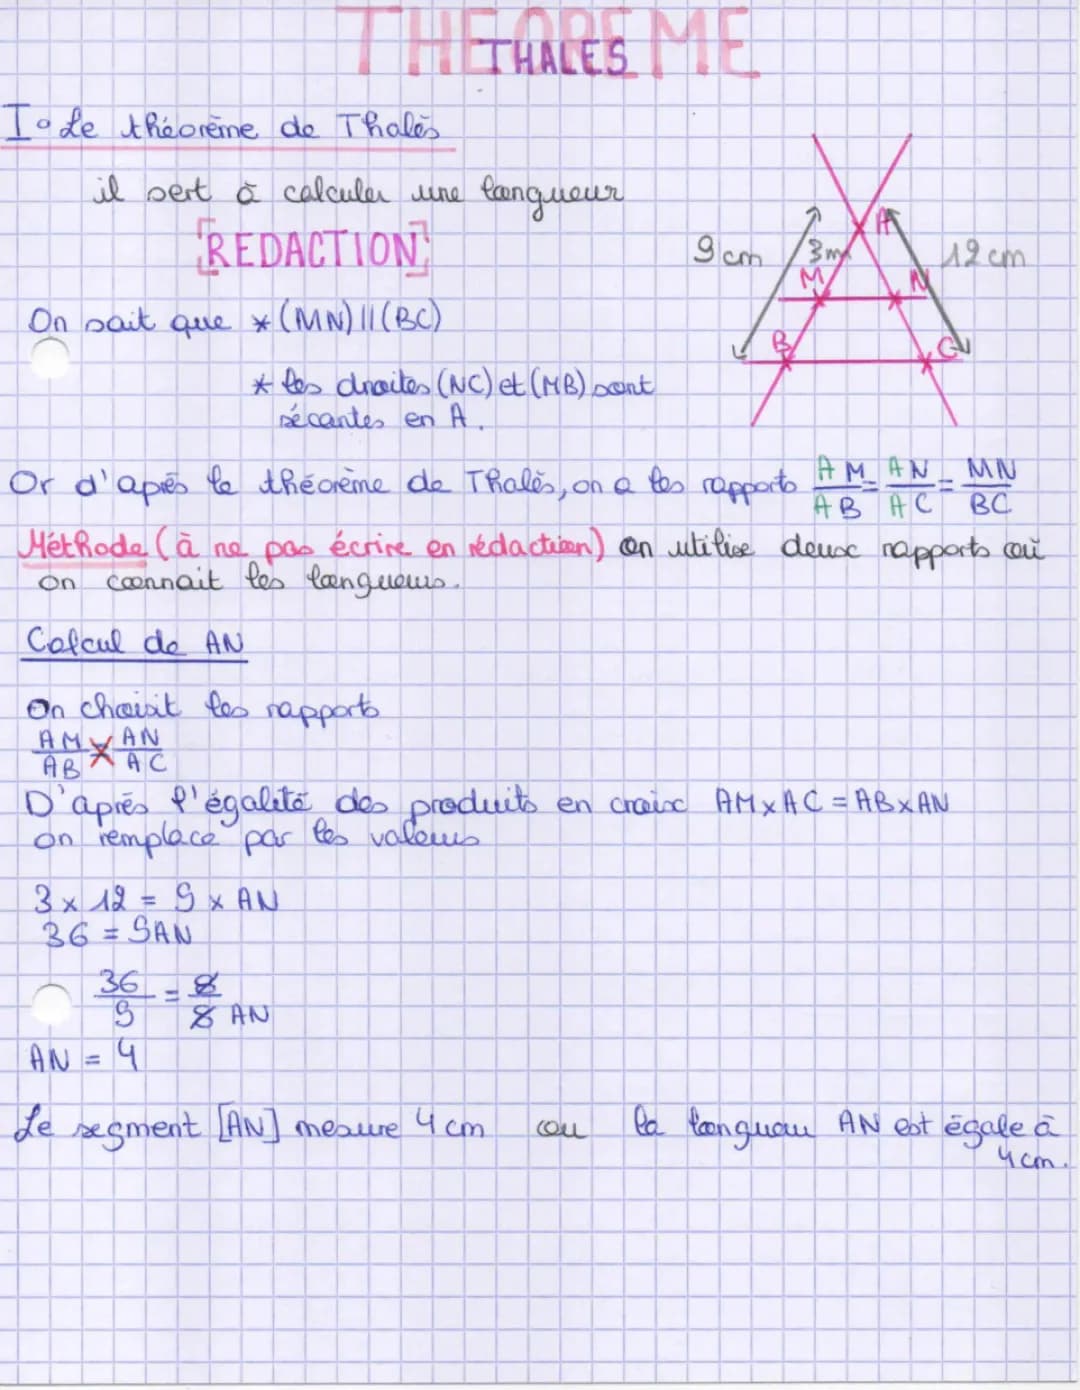 THEOREME
THALES
I° Le théorème de Thalès
il sert à calculer une longueur
[REDACTION]
9 cm
3m
12 cm
A
M
N
B
C
On sait que * (MN) // (BC)
* les droites (NC) et (MB) sont
sécantes en A.
Or d'après le théorème de Thalès, on a les rapports AM/AB = AN/AC = MN/BC
Méthode (à ne pas écrire en rédaction) on utilise deux rapports où
on connait les longueurs.
Calcul de AN
On choisit les rapports
AM/AB = AN/AC
D'après l'égalité des produits en croix AM x AC = AB x AN
on remplace par les valeurs
3 x 12 = 9 x AN
36 = 9AN
36/9 = 8/8 AN
AN = 4
Le segment [AN] mesure 4 cm ou la longueur AN est égale à
4 cm.